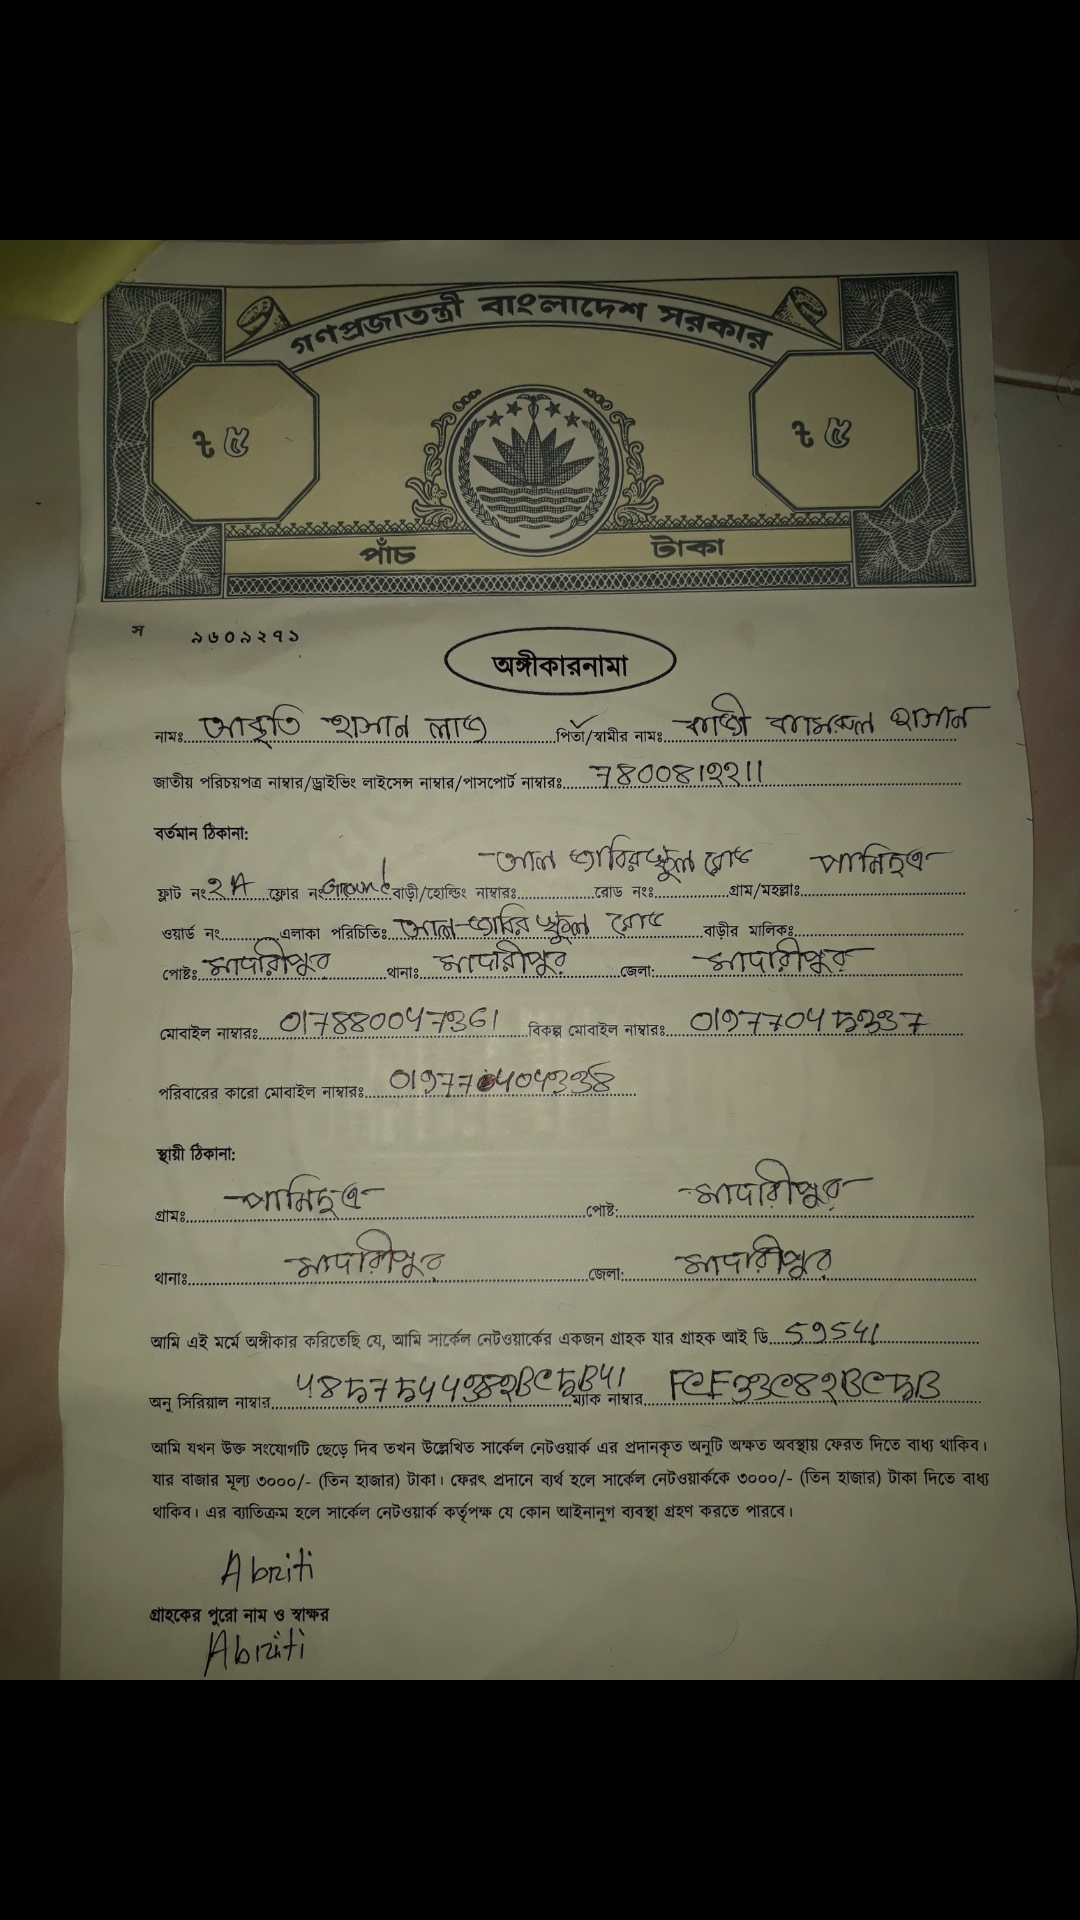 গণপ্রজাতন্ত্রী বাংলাদেশ সরকার
৳ ৫ ৳ ৫
পাঁচ টাকা
স ৯৬০৯২৭১
অঙ্গীকারনামা
নামঃ আবৃতি হাসান লাভ পিতা/স্বামীর নামঃ কাজী কামরুল হাসান
জাতীয় পরিচয়পত্র নাম্বার/ড্রাইভিং লাইসেন্স নাম্বার/পাসপোর্ট নাম্বারঃ 7800812211
বর্তমান ঠিকানা:
আল জাবির স্কুল রোড পানিছত্র
ফ্লাট নং 2A ফ্লোর নং Ground বাড়ী/হোল্ডিং নাম্বারঃ রোড নংঃ গ্রাম/মহল্লাঃ
ওয়ার্ড নং এলাকা পরিচিতিঃ আল-জাবির স্কুল রোড বাড়ীর মালিকঃ
পোষ্টঃ মাদারীপুর থানাঃ মাদারীপুর জেলা: মাদারীপুর
মোবাইল নাম্বারঃ বিকল্প মোবাইল নাম্বারঃ
পরিবারের কারো মোবাইল নাম্বারঃ
স্থায়ী ঠিকানা:
গ্রামঃ পানিছত্র পোষ্ট: মাদারীপুর
থানাঃ মাদারীপুর জেলা: মাদারীপুর
আমি এই মর্মে অঙ্গীকার করিতেছি যে, আমি সার্কেল নেটওয়ার্কের একজন গ্রাহক যার গ্রাহক আই ডি 59541
অনু সিরিয়াল নাম্বার ম্যাক নাম্বার
আমি যখন উক্ত সংযোগটি ছেড়ে দিব তখন উল্লেখিত সার্কেল নেটওয়ার্ক এর প্রদানকৃত অনুটি অক্ষত অবস্থায় ফেরত দিতে বাধ্য থাকিব।
যার বাজার মূল্য ৩০০০/- (তিন হাজার) টাকা। ফেরৎ প্রদানে ব্যর্থ হলে সার্কেল নেটওয়ার্ককে ৩০০০/- (তিন হাজার) টাকা দিতে বাধ্য
থাকিব। এর ব্যাতিক্রম হলে সার্কেল নেটওয়ার্ক কর্তৃপক্ষ যে কোন আইনানুগ ব্যবস্থা গ্রহণ করতে পারবে।
Abriti
গ্রাহকের পুরো নাম ও স্বাক্ষর
Abriti